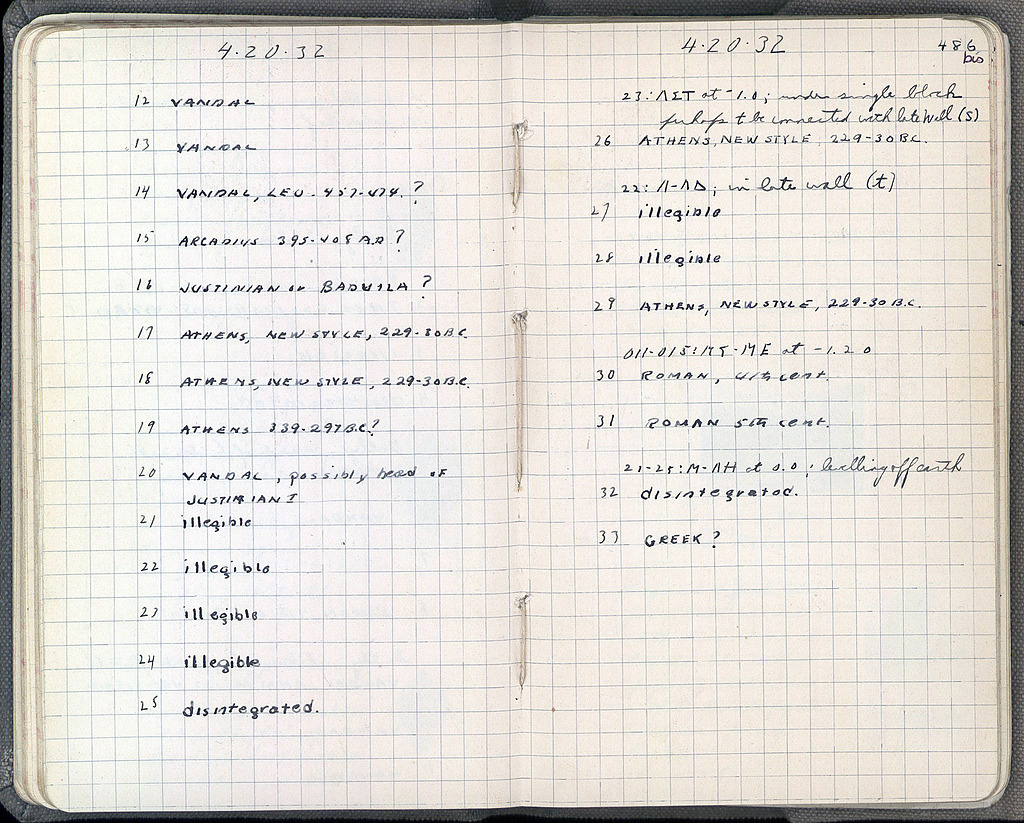 4·20·32
12 VANDAL
13 VANDAL
14 VANDAL, LEO - 457-474. ?
15 ARCADIUS 395-408 A.D ?
16 JUSTINIAN or BADUILA ?
17 ATHENS, NEW STYLE, 229-30 B.C.
18 ATHENS, NEW STYLE, 229-30 B.C.
19 ATHENS 339-297 B.C.?
20 VANDAL, possibly head OF
JUSTINIAN I
21 illegible
22 illegible
23 illegible
24 illegible
25 disintegrated.
4·20·32
486
bis
23: ΛΣΤ at -1.0; under single block
perhaps t be connected with late wall (s)
26 ATHENS, NEW STYLE, 229-30 B.C.
22: Λ-ΛΔ; in late wall (t)
27 illegible
28 illegible
29 ATHENS, NEW STYLE, 229-30 B.C.
at -1.20
30 ROMAN, 4th cent.
31 ROMAN 5th cent.
21-25: Μ-ΛΗ at 0.0; levelling off earth
32 disintegrated.
33 GREEK ?